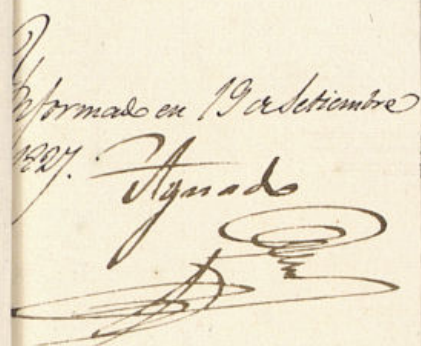 Informado en 19 de Setiembre
1827.
Aguado